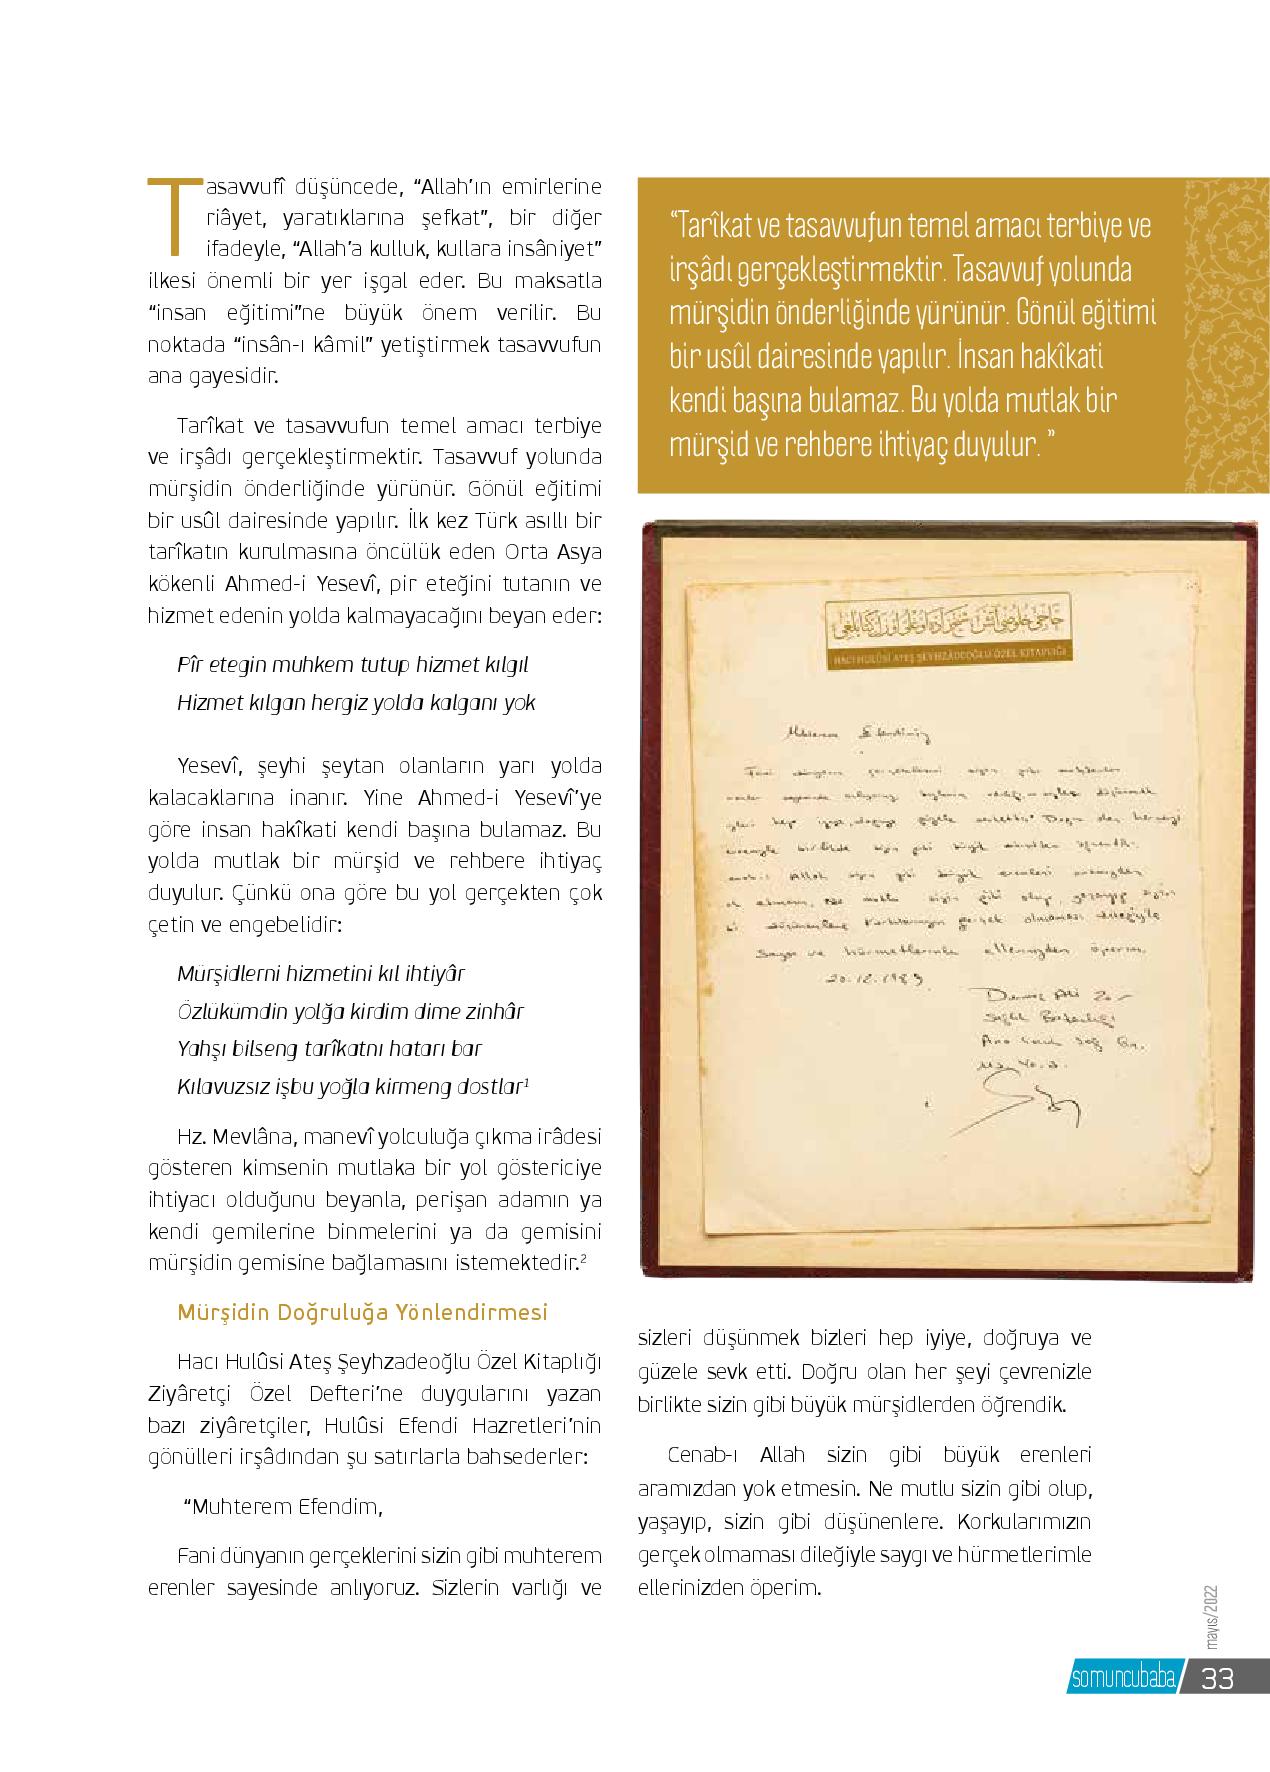 Tasavvufî düşüncede, “Allah’ın emirlerine
riâyet, yaratıklarına şefkat”, bir diğer
ifadeyle, “Allah’a kulluk, kullara insâniyet”
ilkesi önemli bir yer işgal eder. Bu maksatla
“insan eğitimi”ne büyük önem verilir. Bu
noktada “insân-ı kâmil” yetiştirmek tasavvufun
ana gayesidir.
Tarîkat ve tasavvufun temel amacı terbiye
ve irşâdı gerçekleştirmektir. Tasavvuf yolunda
mürşidin önderliğinde yürünür. Gönül eğitimi
bir usûl dairesinde yapılır. İlk kez Türk asıllı bir
tarîkatın kurulmasına öncülük eden Orta Asya
kökenli Ahmed-i Yesevî, pir eteğini tutanın ve
hizmet edenin yolda kalmayacağını beyan eder:
Pîr etegin muhkem tutup hizmet kılgıl
Hizmet kılgan hergiz yolda kalganı yok
Yesevî, şeyhi şeytan olanların yarı yolda
kalacaklarına inanır. Yine Ahmed-i Yesevî’ye
göre insan hakîkati kendi başına bulamaz. Bu
yolda mutlak bir mürşid ve rehbere ihtiyaç
duyulur. Çünkü ona göre bu yol gerçekten çok
çetin ve engebelidir:
Mürşidlerni hizmetini kıl ihtiyâr
Özlükümdin yolğa kirdim dime zinhâr
Yahşı bilseng tarîkatnı hatarı bar
Kılavuzsız işbu yoğla kirmeng dostlar¹
Hz. Mevlâna, manevî yolculuğa çıkma irâdesi
gösteren kimsenin mutlaka bir yol göstericiye
ihtiyacı olduğunu beyanla, perişan adamın ya
kendi gemilerine binmelerini ya da gemisini
mürşidin gemisine bağlamasını istemektedir.²
Mürşidin Doğruluğa Yönlendirmesi
Hacı Hulûsi Ateş Şeyhzadeoğlu Özel Kitaplığı
Ziyâretçi Özel Defteri’ne duygularını yazan
bazı ziyâretçiler, Hulûsi Efendi Hazretleri’nin
gönülleri irşâdından şu satırlarla bahsederler:
“Muhterem Efendim,
Fani dünyanın gerçeklerini sizin gibi muhterem
erenler sayesinde anlıyoruz. Sizlerin varlığı ve
“Tarîkat ve tasavvufun temel amacı terbiye ve
irşâdı gerçekleştirmektir. Tasavvuf yolunda
mürşidin önderliğinde yürünür. Gönül eğitimi
bir usûl dairesinde yapılır. İnsan hakîkati
kendi başına bulamaz. Bu yolda mutlak bir
mürşid ve rehbere ihtiyaç duyulur. ”
HACI HULÛSİ ATEŞ ŞEYHZÂDEOĞLU ÖZEL KİTAPLIĞI
saygı ve hürmetlerimle ellerinizden öperim.
20.12.1983
sizleri düşünmek bizleri hep iyiye, doğruya ve
güzele sevk etti. Doğru olan her şeyi çevrenizle
birlikte sizin gibi büyük mürşidlerden öğrendik.
Cenab-ı Allah sizin gibi büyük erenleri
aramızdan yok etmesin. Ne mutlu sizin gibi olup,
yaşayıp, sizin gibi düşünenlere. Korkularımızın
gerçek olmaması dileğiyle saygı ve hürmetlerimle
ellerinizden öperim.
mayıs/2022
somuncubaba 33